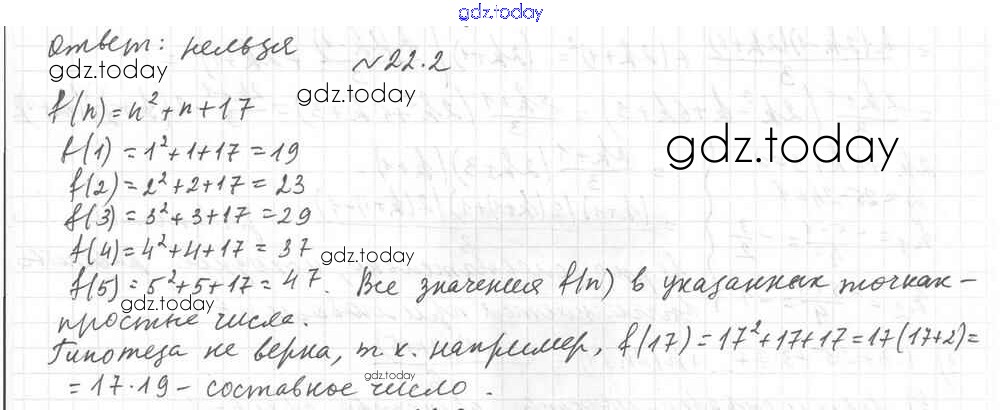 gdz.today
Ответ: нельзя
gdz.today
№22.2
gdz.today
f(n)=n²+n+17
f(1)=1²+1+17=19
gdz.today
f(2)=2²+2+17=23
f(3)=3²+3+17=29
f(4)=4²+4+17=37
gdz.today
f(5)=5²+5+17=47. Все значения f(n) в указанных точках –
gdz.today
простые числа.
Гипотеза не верна, т.к. например, f(17)=17²+17+17=17(17+2)=
gdz.today
=17·19 – составное число.